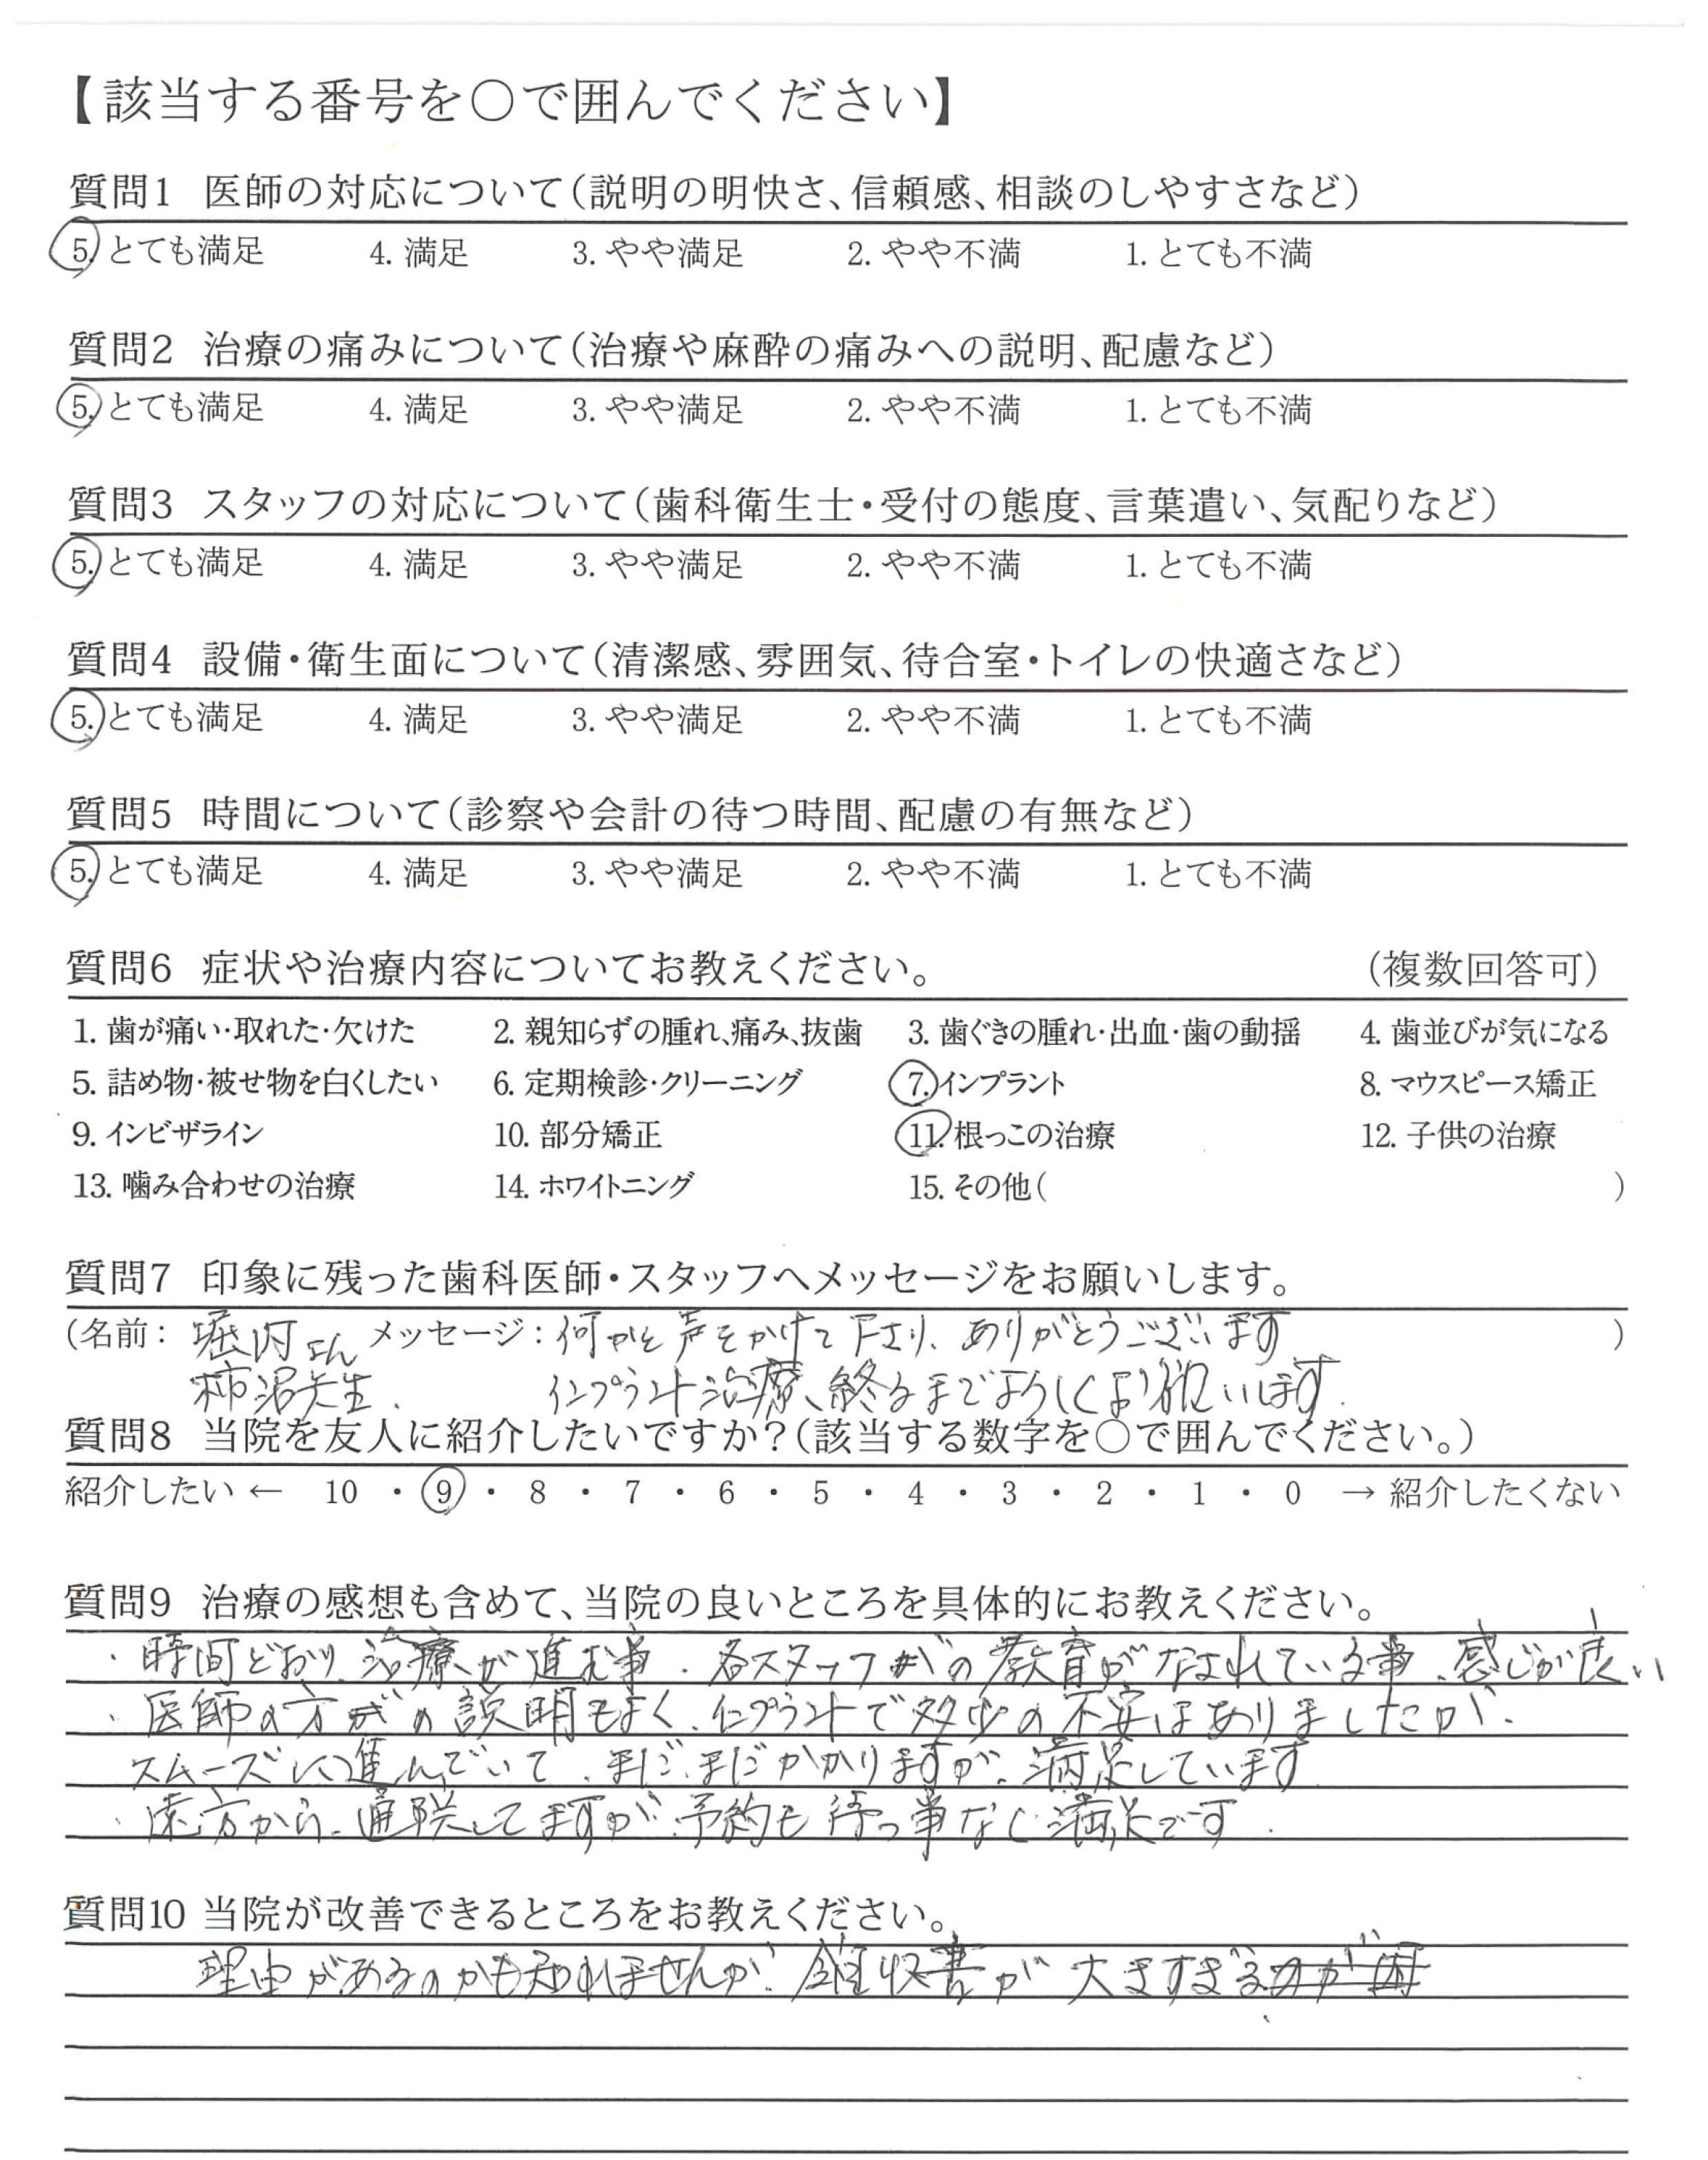 【該当する番号を○で囲んでください】
質問1 医師の対応について(説明の明快さ、信頼感、相談のしやすさなど)
5. とても満足 4. 満足 3. やや満足 2. やや不満 1. とても不満
質問2 治療の痛みについて(治療や麻酔の痛みへの説明、配慮など)
5. とても満足 4. 満足 3. やや満足 2. やや不満 1. とても不満
質問3 スタッフの対応について(歯科衛生士・受付の態度、言葉遣い、気配りなど)
5. とても満足 4. 満足 3. やや満足 2. やや不満 1. とても不満
質問4 設備・衛生面について(清潔感、雰囲気、待合室・トイレの快適さなど)
5. とても満足 4. 満足 3. やや満足 2. やや不満 1. とても不満
質問5 時間について(診察や会計の待つ時間、配慮の有無など)
5. とても満足 4. 満足 3. やや満足 2. やや不満 1. とても不満
質問6 症状や治療内容についてお教えください。 (複数回答可)
1. 歯が痛い・取れた・欠けた 2. 親知らずの腫れ、痛み、抜歯 3. 歯ぐきの腫れ・出血・歯の動揺 4. 歯並びが気になる
5. 詰め物・被せ物を白くしたい 6. 定期検診・クリーニング 7. インプラント 8. マウスピース矯正
9. インビザライン 10. 部分矯正 11. 根っこの治療 12. 子供の治療
13. 噛み合わせの治療 14. ホワイトニング 15. その他( )
質問7 印象に残った歯科医師・スタッフへメッセージをお願いします。
(名前: 堀内さん メッセージ: 何かと声をかけて下さり、ありがとうございます )
柿沼先生. インプラント治療、終るまでよろしくお願いします.
質問8 当院を友人に紹介したいですか?(該当する数字を○で囲んでください。)
紹介したい ← 10 ・ 9 ・ 8 ・ 7 ・ 6 ・ 5 ・ 4 ・ 3 ・ 2 ・ 1 ・ 0 → 紹介したくない
質問9 治療の感想も含めて、当院の良いところを具体的にお教えください。
・時間どおり、治療が進む事.各スタッフの教育がなされている事、感じが良い
・医師の方の説明もよく、インプラントで多少の不安はありましたが、
スムーズに進んでいて、まだまだかかりますが、満足しています
・遠方から、通院してますが、予約も待つ事なく満足です.
質問10 当院が改善できるところをお教えください。
理由があるのかも知れませんが、領収書が大きすぎる